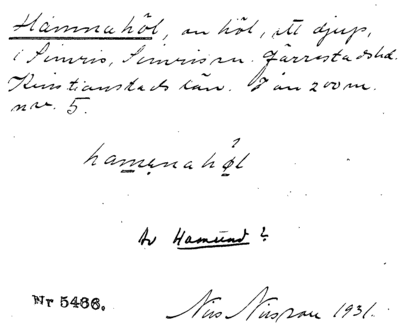 Hamnahöl, en höl, ett djup,
i Simris, Simris sn. Järrestads hd.
Kristianstads län. Från 200 m.
nv. 5.
hamǝnahø̂l
Av Hamund?
Nr 5486. Nils Nilsson 1931.